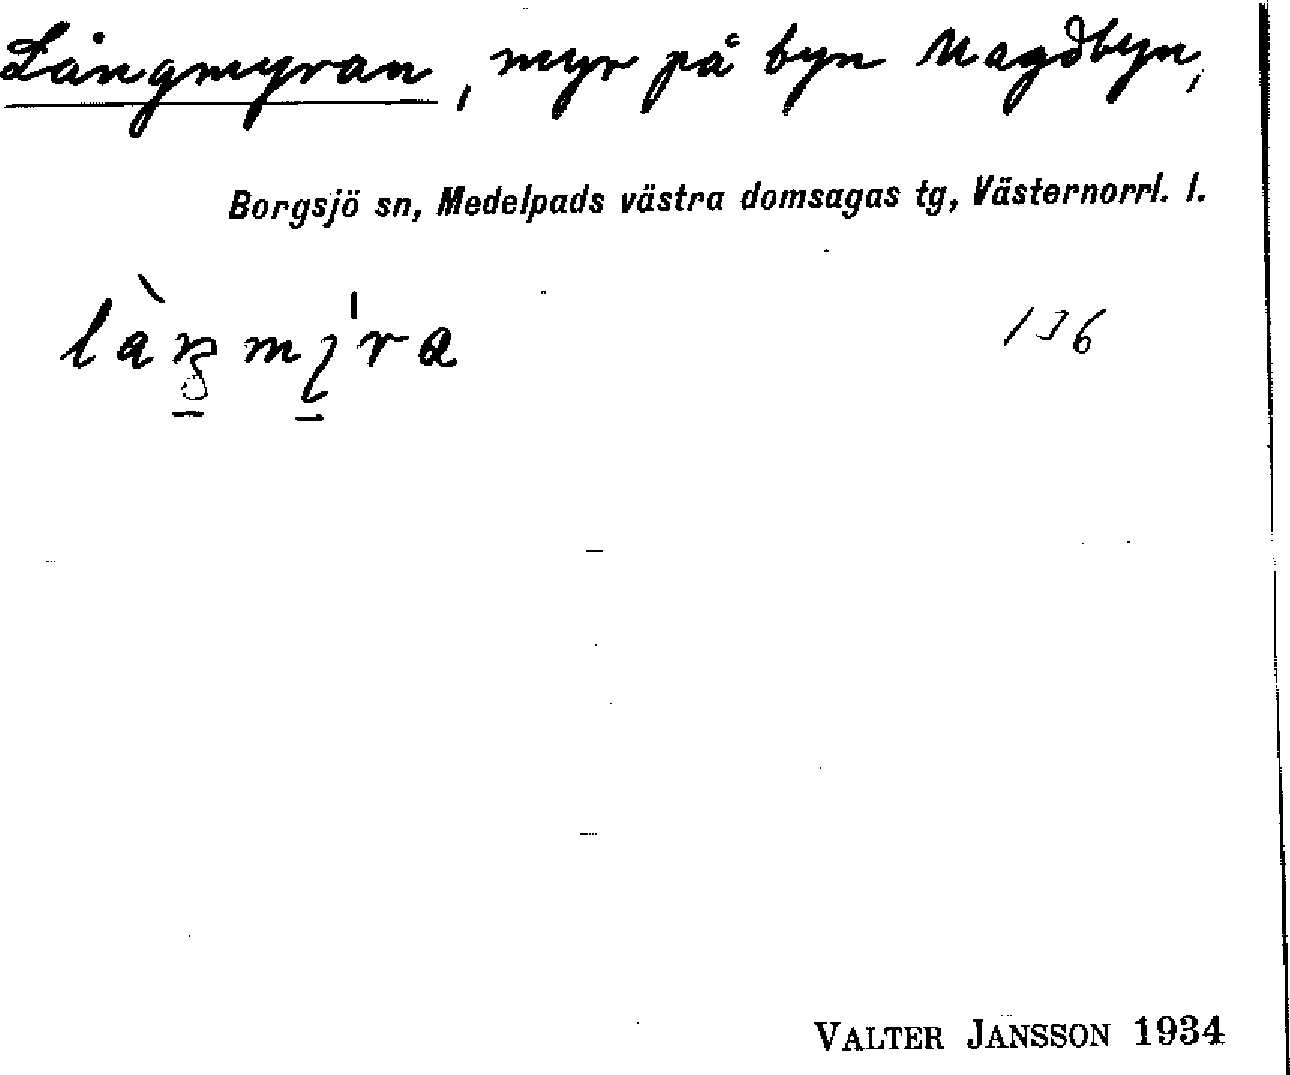 Långmyran, myr på byn Nagdbyn,
Borgsjö sn, Medelpads västra domsagas tg, Västernorrl. l.
136
VALTER JANSSON 1934